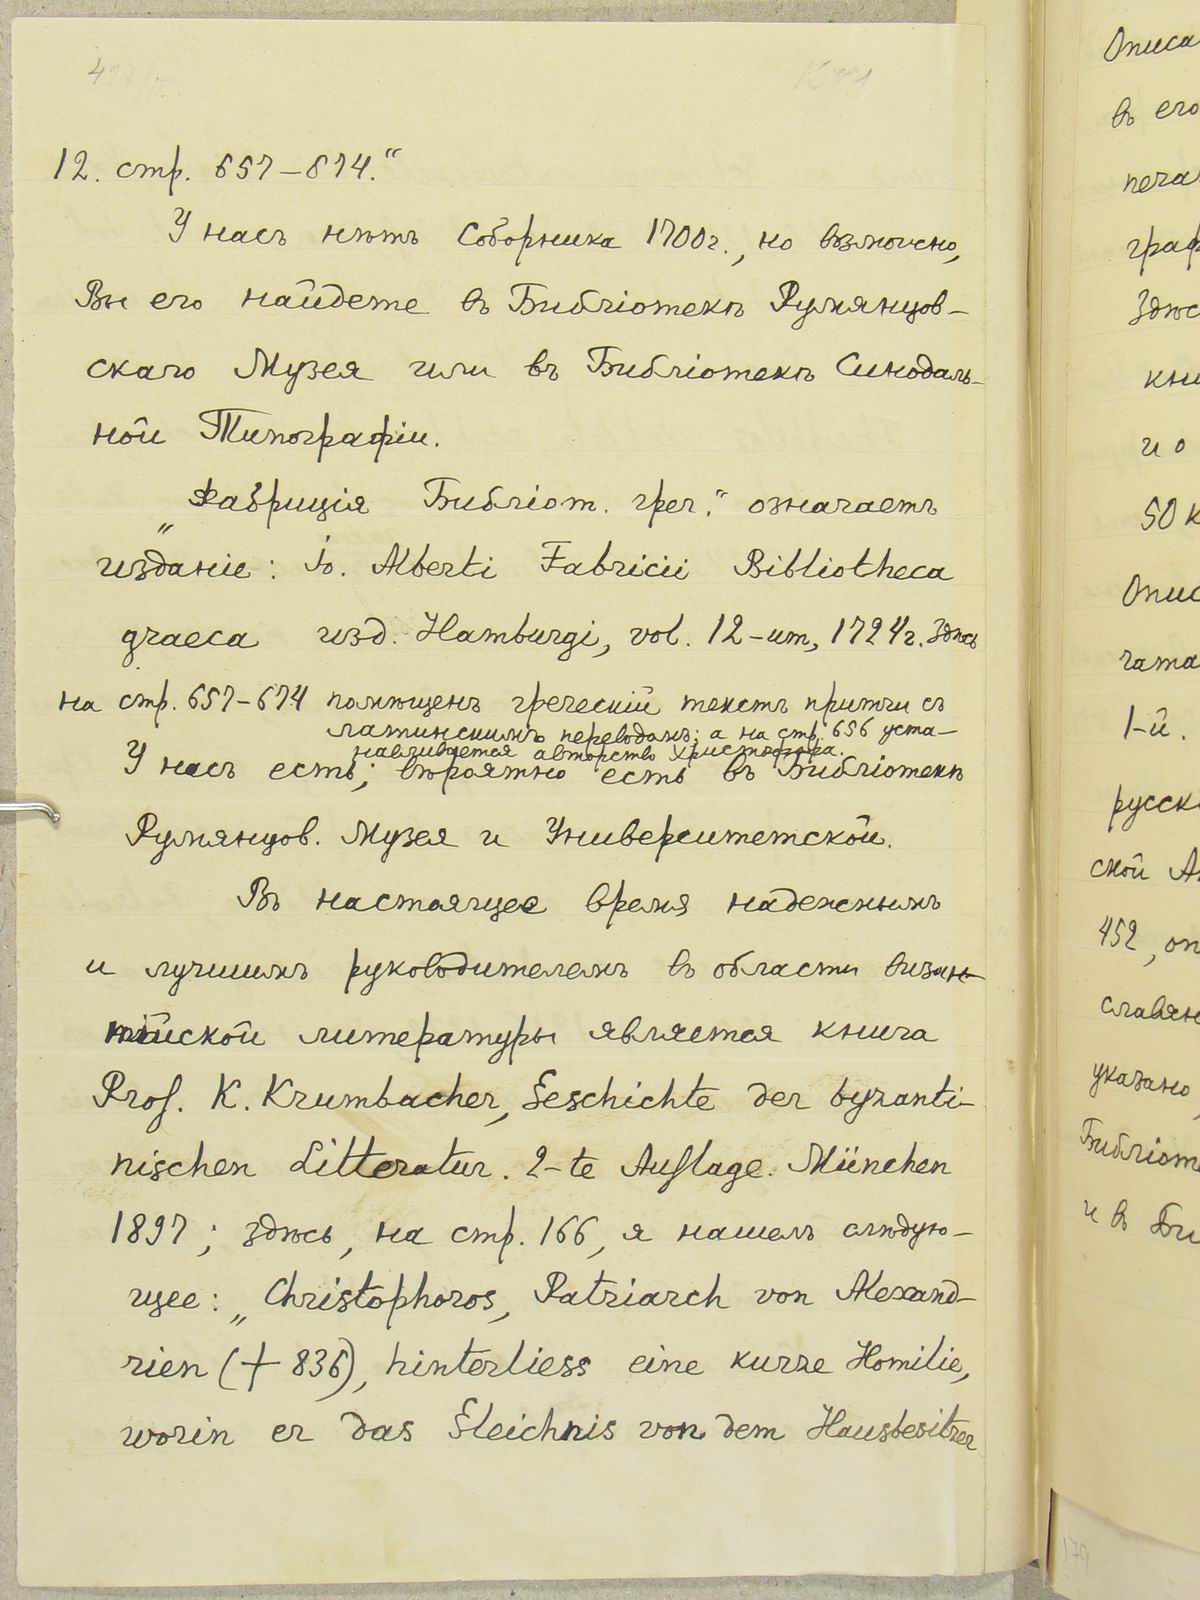 12. стр. 657–674.“
У насъ нѣтъ Соборника 1700 г., но возможно,
Вы его найдете въ Библіотекѣ Румянцов-
скаго Музея или въ Библіотекѣ Синодаль-
ной Типографіи.
„Фабриція Библіот. греч.“ означаетъ
изданіе: Io. Alberti Fabricii Bibliotheca
graeca изд. Hamburgi, vol. 12-um, 1724 г. Здѣсь
на стр. 657–674 помѣщенъ греческій текстъ притчи съ
латинскимъ переводомъ; а на стр. 656 уста-
навливается авторство Христофора.
У насъ есть; вѣроятно есть въ Библіотекѣ
Румянцов. Музея и Университетской.
Въ настоящее время надежнымъ
и лучшимъ руководителемъ въ области визан-
тійской литературы является книга
Prof. K. Krumbacher, Geschichte der byzanti-
nischen Litteratur. 2-te Auflage. München
1897; здѣсь, на стр. 166, я нашелъ слѣдую-
щее: „Christophoros, Patriarch von Alexand-
rien († 836), hinterliess eine kurze Homilie,
worin er das Gleichnis von dem Hausbesitzer
Описа
въ его
печа
граф
Здѣс
кни
и о
50 к
Опис
чата
1-й.
русск
ской А
452, оп
славян
указано,
Библіоте
и въ Би
179